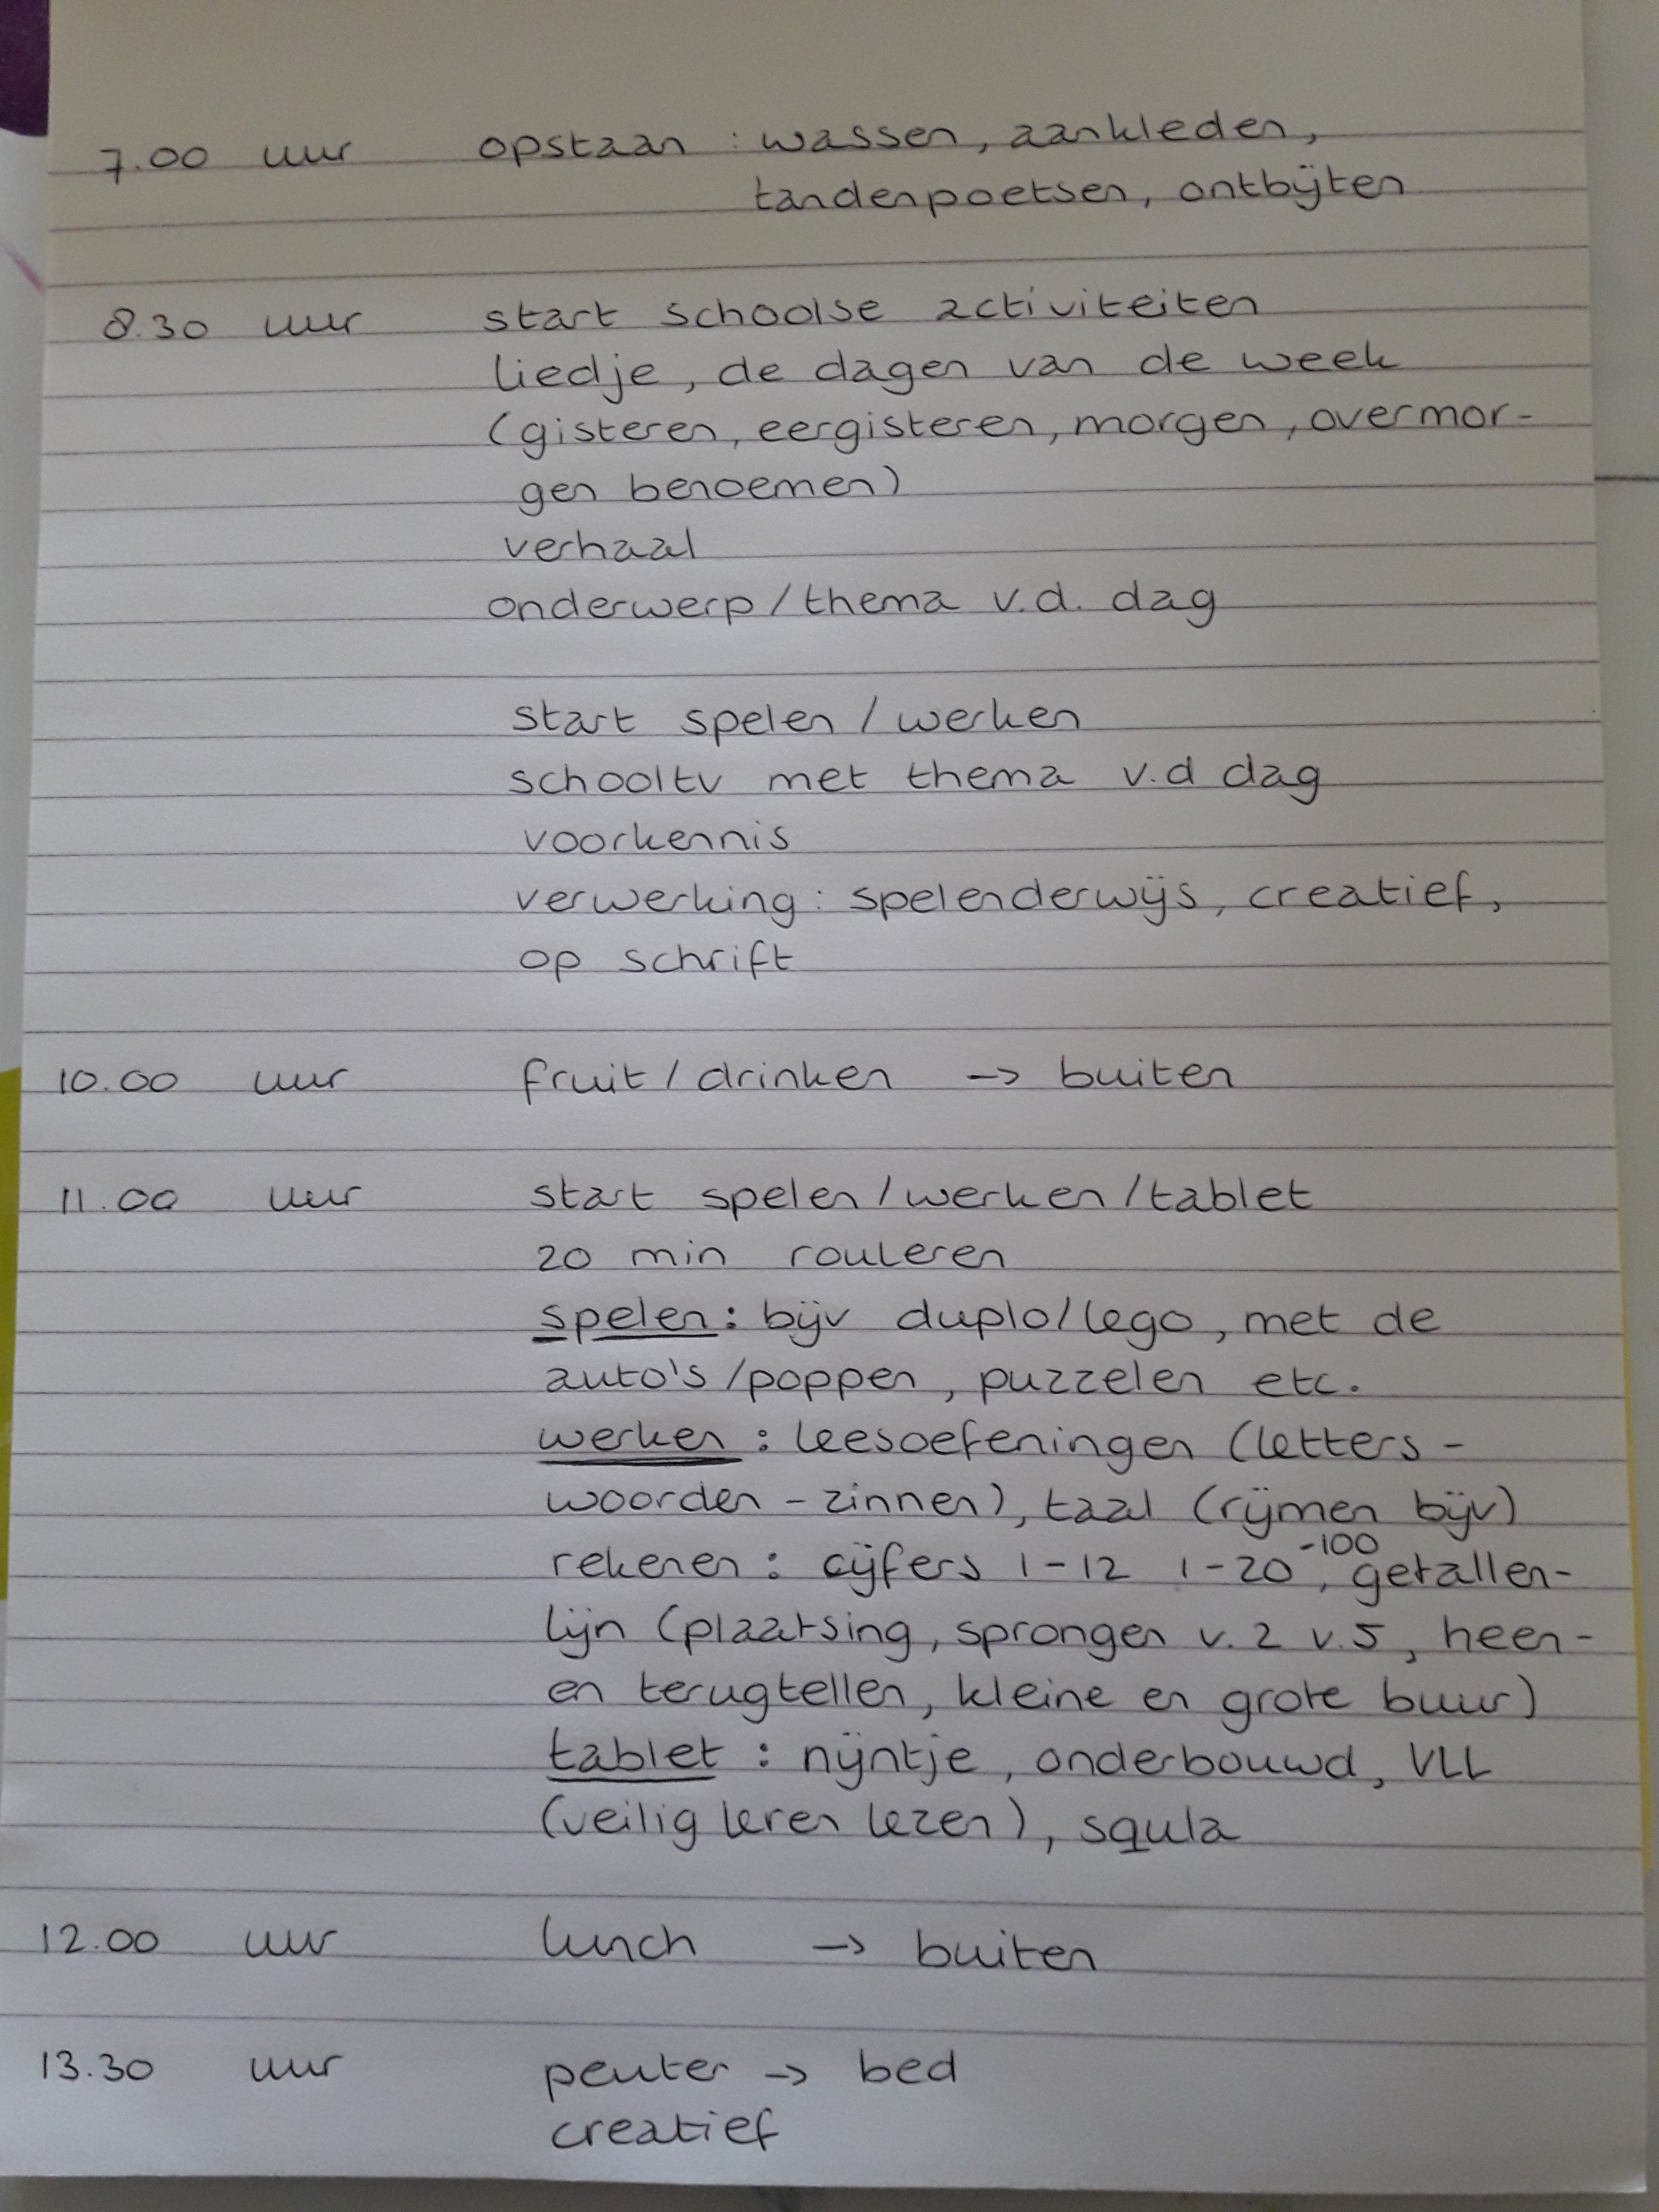 7.00 uur opstaan : wassen, aankleden,
tandenpoetsen, ontbijten
8.30 uur start schoolse activiteiten
liedje, de dagen van de week
(gisteren, eergisteren, morgen, overmor-
gen benoemen)
verhaal
onderwerp/thema v.d. dag
start spelen / werken
schooltv met thema v.d dag
voorkennis
verwerking : spelenderwijs, creatief,
op schrift
10.00 uur fruit/drinken -> buiten
11.00 uur start spelen/werken/tablet
20 min rouleren
spelen: bijv duplo/lego, met de
auto's/poppen, puzzelen etc.
werken : leesoefeningen (letters -
woorden - zinnen), taal (rijmen bijv)
rekenen : cijfers 1-12 1-20 -100, getallen-
lijn (plaatsing, sprongen v.2 v.5, heen-
en terugtellen, kleine en grote buur)
tablet : nijntje, onderbouwd, VLL
(veilig leren lezen), squla
12.00 uur lunch -> buiten
13.30 uur peuter -> bed
creatief